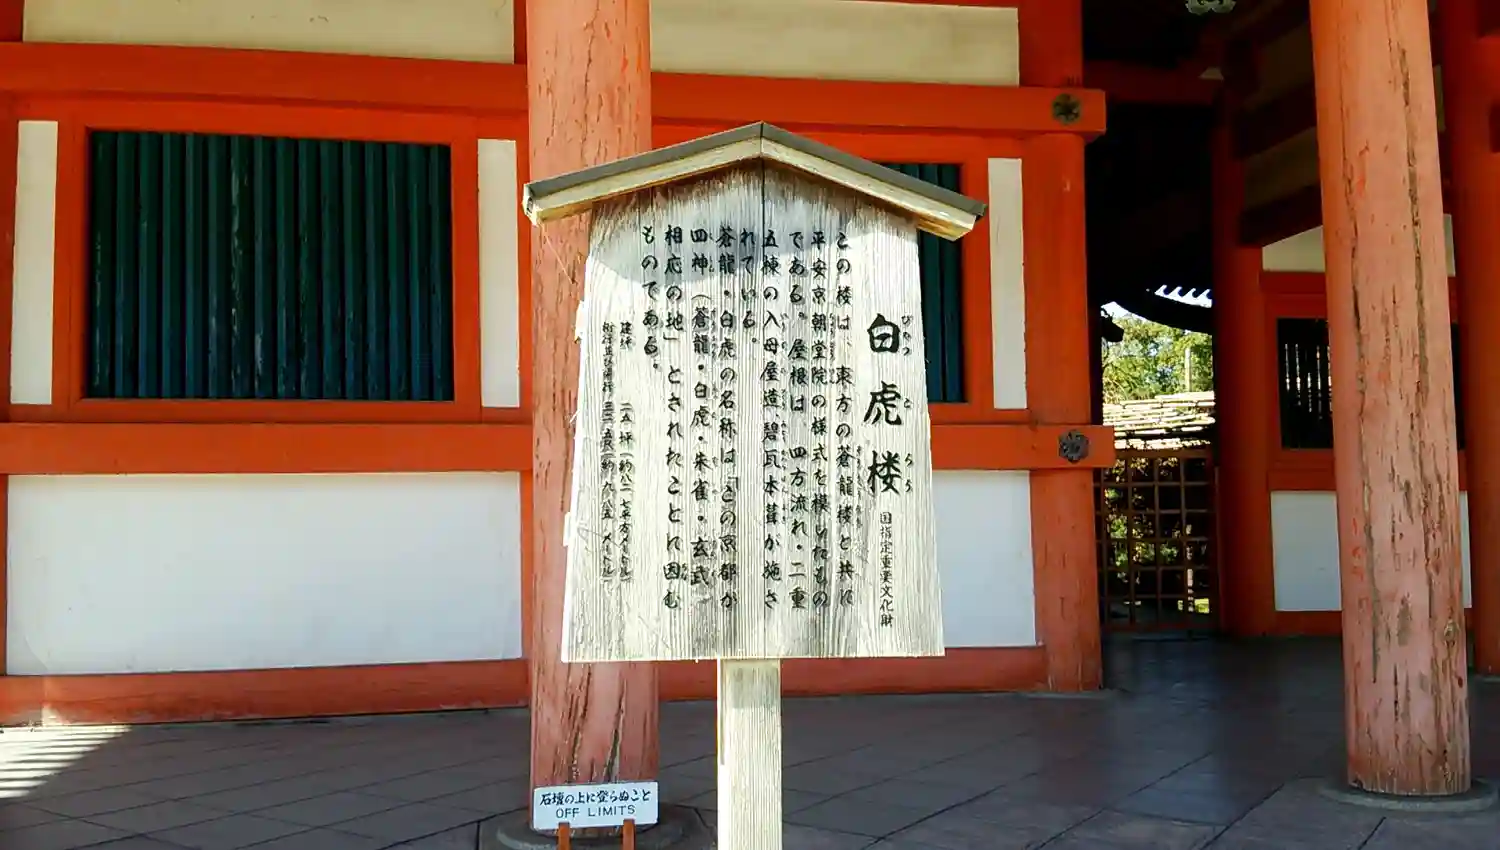 白虎楼 国指定重要文化財
びゃっ こ ろう
この楼は、東方の蒼龍楼と共に
平安京朝堂院の様式を模したもの
である。屋根は、四方流れ・二重
五棟の入母屋造、碧瓦本葺が施さ
れている。
蒼龍・白虎の名称は「この京都が
四神(蒼龍・白虎・朱雀・玄武)
相応の地」とされたことに因む
ものである。
建坪 二五坪(約八二・七平方メートル)
石壇の上に登らぬこと
OFF LIMITS